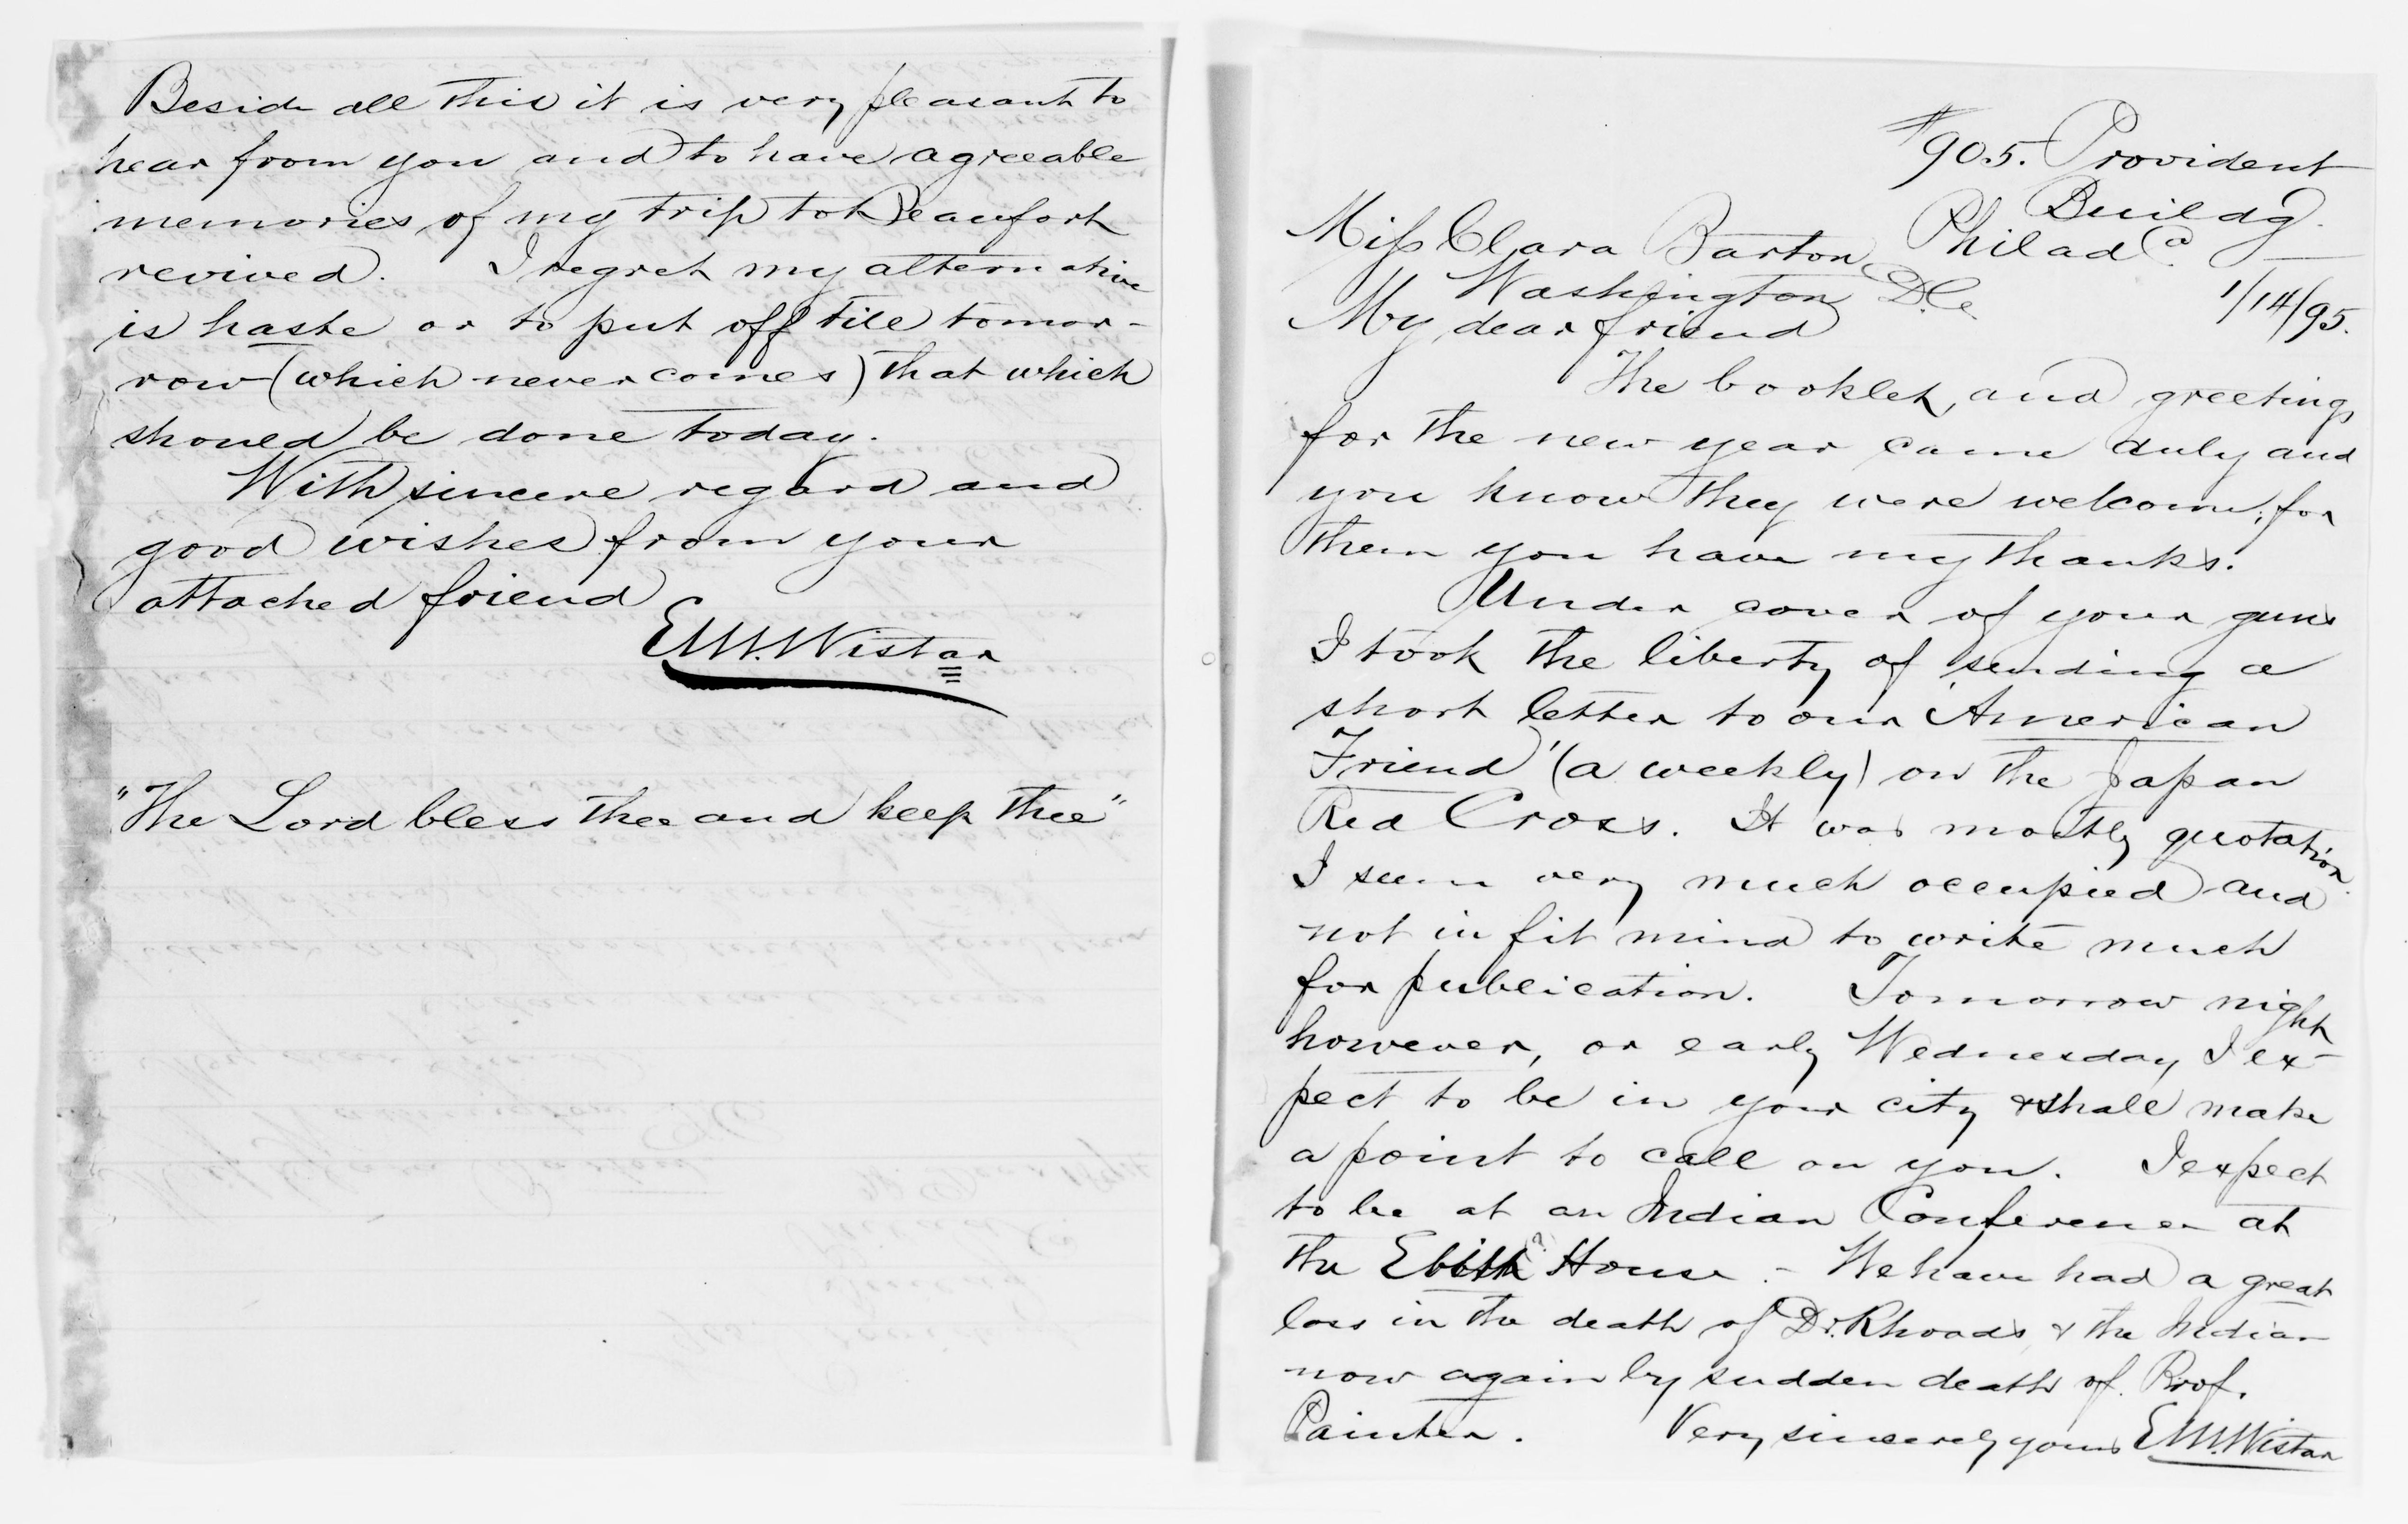 Beside all this it is very pleasant to
hear from you and to have agreeable
memories of my trip to Beaufort
revived. I regret my alternative
is haste or to put off till tomor-
row (which never comes) that which
should be done today.
With sincere regard and
good wishes from your
attached friend
E.M. Wistar
"The Lord bless thee and keep thee"
#905. Provident
Buildg.
Miss Clara Barton Philada
Washington D.C. 1/14/95.
My dear friend
The booklet, and greetings
for the new year came duly and
you know they were welcome; for
them you have my thanks.
Under cover of your guns
I took the liberty of sending a
short letter to our 'American
Friend' (a weekly) on the Japan
Red Cross. It was mostly quotation.
I seem very much occupied and
not in fit mind to write much
for publication. Tomorrow night
however, or early Wednesday, I ex-
pect to be in your city & shall make
a point to call on you. I expect
to be at an Indian Conference at
the Ebitt (?) House. - We have had a great
loss in the death of Dr. Rhoads, & the Indian
now again by sudden death of Prof.
Painter. Very sincerely yours E.M. Wistar